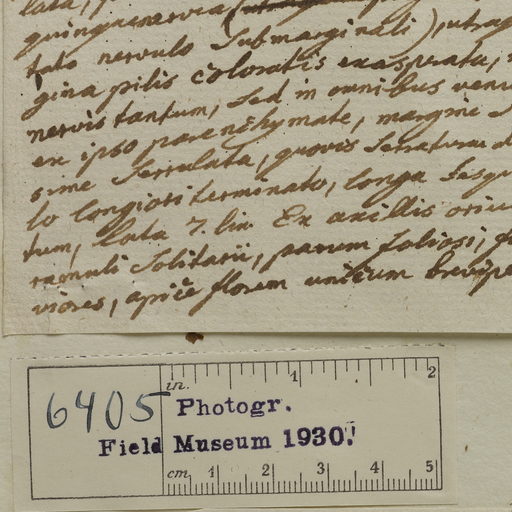 lata,
quinquenervia, submarginali), utraq
tato nervulo
gina pilis coloratis exasperata,
nervis tantum, sed in omnibus venu
ex ipso parenchymate, margine
sime serrulata, quovis serraturae d
lo longiori terminato, longa sesqu
tum, lata 7. lin. Ex axillis oriu
ramuli solitarii, parum foliosi, f
viores, apice florem unicum brevipe
6405
in. 1 2
Photogr.
Field Museum 1930.
cm 1 2 3 4 5